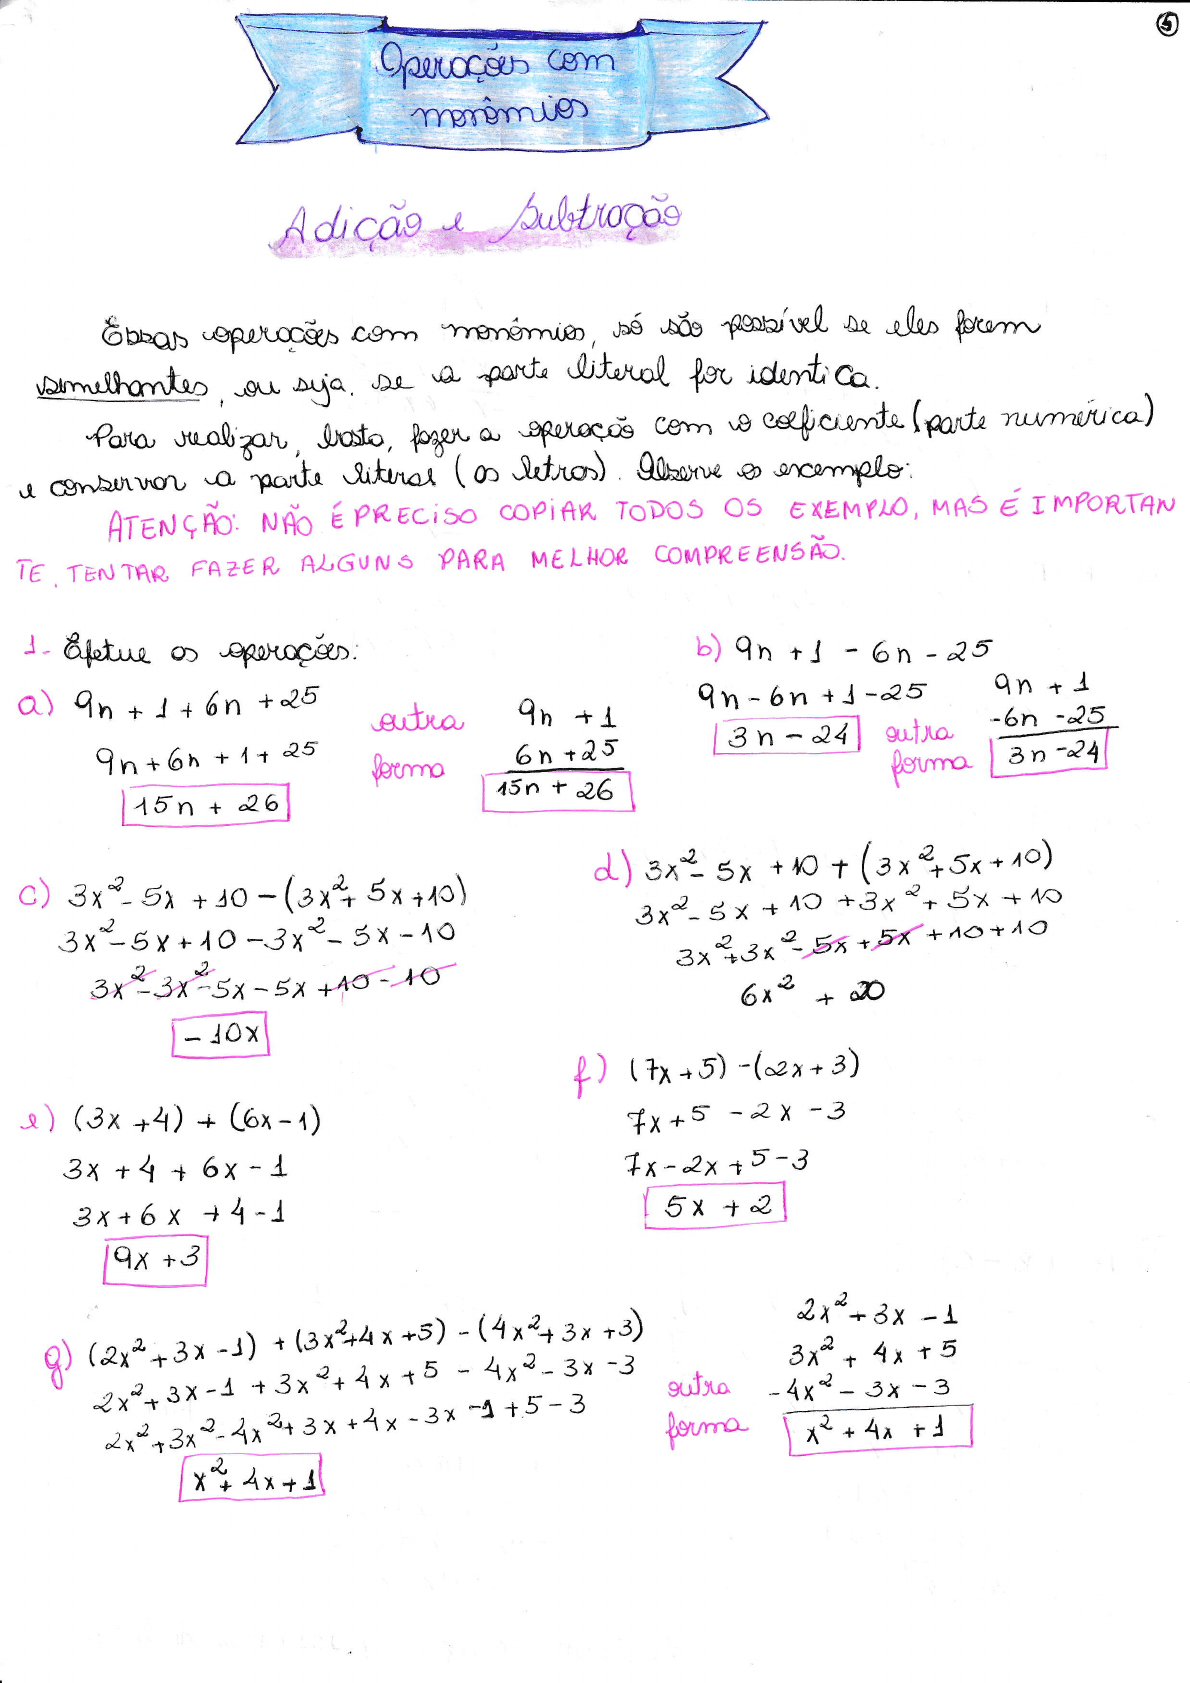 5
Operações com
monômios
Adição e subtração
Essas operações com monômios, só são possível se eles forem
semelhantes, ou seja. se a parte literal for identica.
Para realizar, basta, fazer a operação com o coeficiente (parte numérica)
e conservar a parte literal (as letras). Observe os exemplo:
ATENÇÃO: NÃO É PRECISO COPIAR TODOS OS EXEMPLO, MAS É IMPORTAN
TE, TENTAR FAZER ALGUNS PARA MELHOR COMPREENSÃO.
1- Efetue as operações:
a) 9n + 1 + 6n + 25
9n + 6n + 1 + 25
15n + 26
outra
forma
9n + 1
6n + 25
15n + 26
b) 9n + 1 - 6n - 25
9n - 6n + 1 - 25
3n - 24
outra
forma
9n + 1
-6n - 25
3n - 24
c) 3x² - 5x + 10 - (3x² + 5x + 10)
3x² - 5x + 10 - 3x² - 5x - 10
3x² - 3x² - 5x - 5x + 10 - 10
- 10x
d) 3x² - 5x + 10 + (3x² + 5x + 10)
3x² - 5x + 10 + 3x² + 5x + 10
3x² + 3x² - 5x + 5x + 10 + 10
6x² + 20
e) (3x + 4) + (6x - 1)
3x + 4 + 6x - 1
3x + 6x + 4 - 1
9x + 3
f) (7x + 5) - (2x + 3)
7x + 5 - 2x - 3
7x - 2x + 5 - 3
5x + 2
g) (2x² + 3x - 1) + (3x² + 4x + 5) - (4x² + 3x + 3)
2x² + 3x - 1 + 3x² + 4x + 5 - 4x² - 3x - 3
2x² + 3x² - 4x² + 3x + 4x - 3x - 1 + 5 - 3
x² + 4x + 1
outra
forma
2x² + 3x - 1
3x² + 4x + 5
- 4x² - 3x - 3
x² + 4x + 1